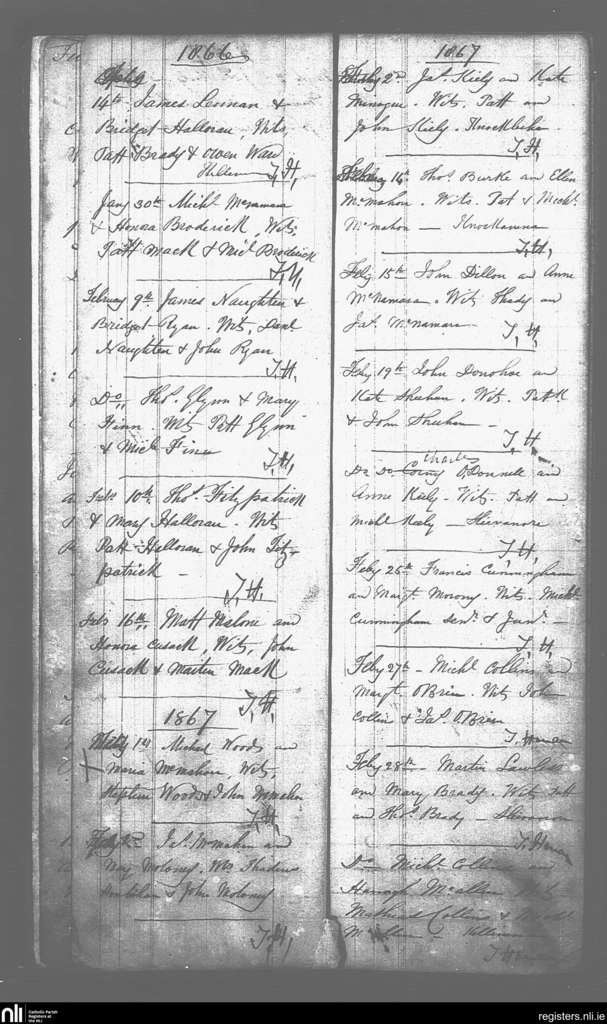 1866
14th James Lennan &
Bridget Halloran, Wits,
Patt Brady & Owen Ward
T,H,
Jany 30th Michl McNamara
& Honora Broderick, Wits,
Patt Mack & Micl Broderick
T,H,
Febuary 9th James Naughten &
Bridget Ryan. Wits, Danl
Naughten & John Ryan
T.H.
Do Thos. Glynn & Mary
Finn Wits Patt Glynn
& Micl Finn
T,H,
Feb 10th Thos. Fitzpatrick
& Mary Halloran. Wits
Patt Halloran & John Fitz-
patrick -
T,H,
Feb 16th, Matt Malone and
Honora Cusack, Wits, John
Cusack & Martin Mack
T,H,
1867
1st Micheal Woods and
Maria McMahon, Wits,
Stephen Woods & John McMahon
T,H,
Jas. McMahon and
Mary Moloney. Wits Thadeus
& John Moloney
T,H,
1867
Feby 2d Jas. Kiely and Kate
Minogue. Wits. Patt and
John Kiely. Knockbeha
T,H,
14th Thos. Burke and Ellen
McMahon. Wits. Pat & Michl.
McMahon —
T,H,
Feby 15th John Dillon and Anne
McNamara. Wits Thady and
Jas. McNamara
T,H,
Feby 19th John Donohoe and
Kate Sheehan. Wits. Patk
& John Sheehan -
T,H
Charles
Do Do O'Donnell and
Anne Kiely - Wits. Patt and
Michl Kiely —
T,H,
Feby 25th Francis Cunningham
and Margt Morony. Wits. Michl.
Cunningham Senr. & Junr. -
T,H,
Feby 27th - Michl Collins and
Margt OBrien. Wits John
Collins & Jas. OBrien
Feby 28th - Martin Lawless
and Mary Brady. Wits Patt
and Thos. Brady -
Do - Michl. Collins and
Collins &
nli
Catholic Parish
Registers at
the NLI
registers.nli.ie